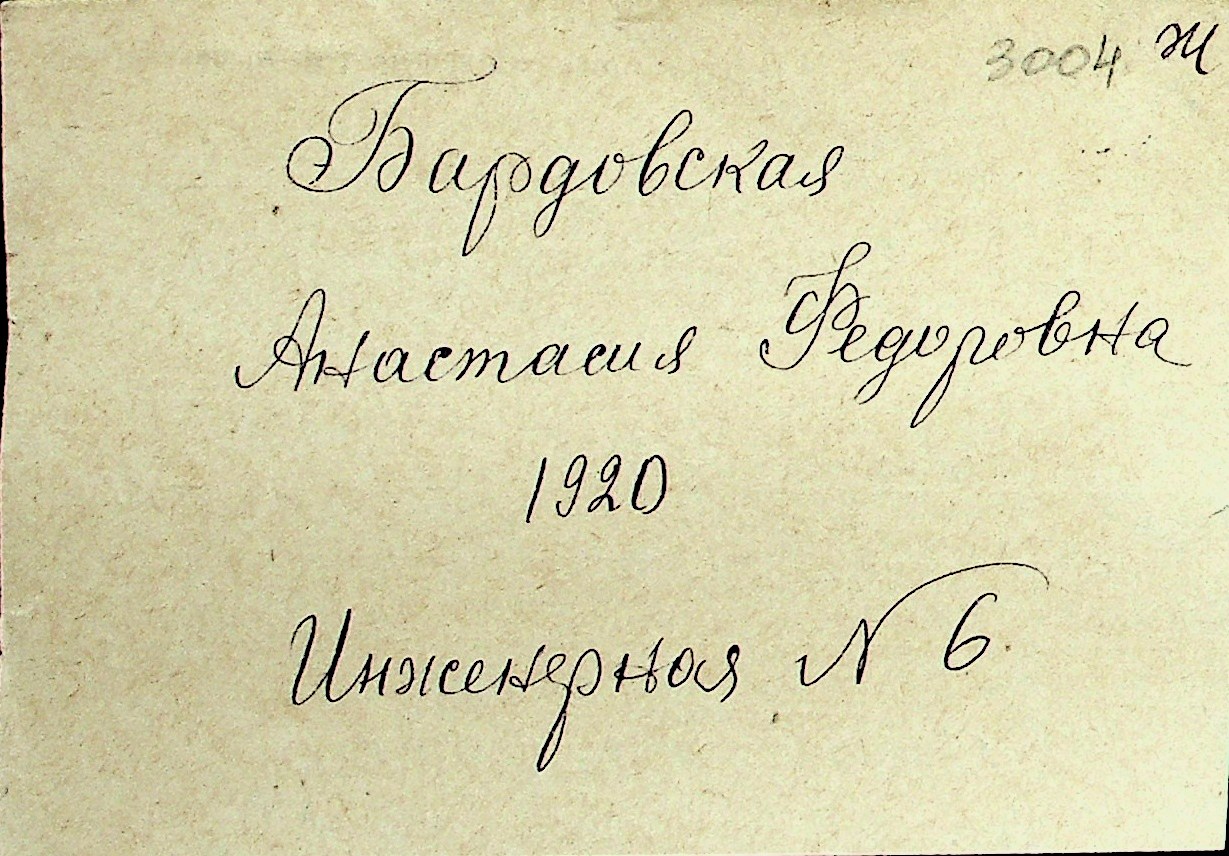 3004 Ж
Бардовская
Анастасия Федоровна
1920
Инженерная N 6